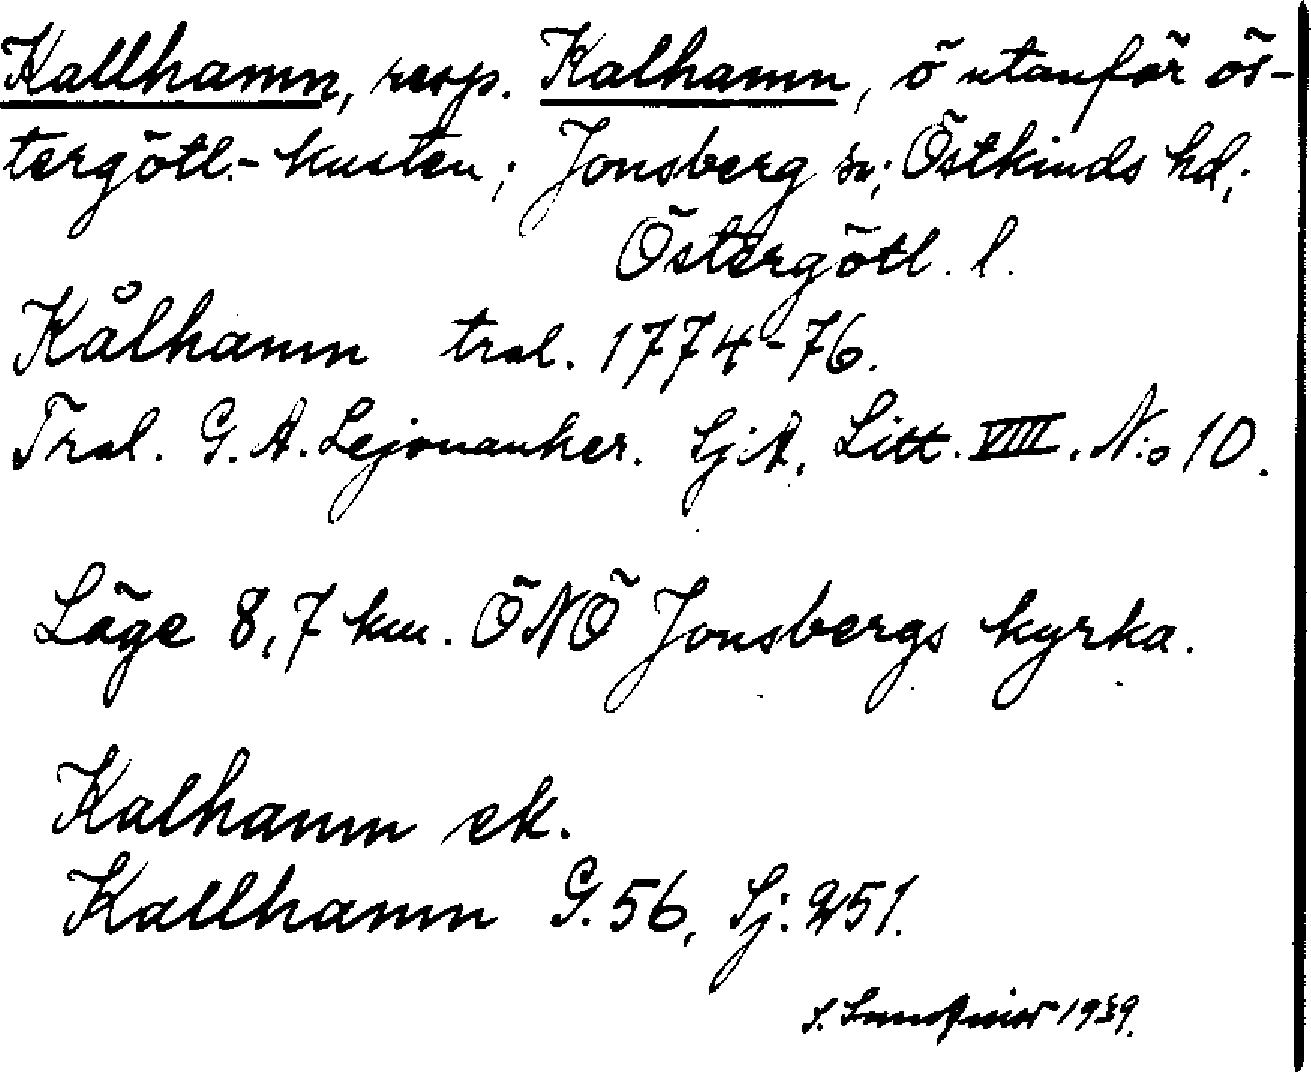 Kallhamn, resp. Kalhamn, ö utanför ös-
tergötl.- kusten; Jonsberg sn; Östkinds hd;
Östergötl. l.
Kålhamn tral. 1774-76.
Tral. G. A. Lejonanker. Sj:A. Litt. VIII. N:o 10.
Läge 8,7 km. ÖNÖ Jonsbergs kyrka.
Kalhamn ek.
Kallhamn G. 56, Sj: 251.
S. 1939.